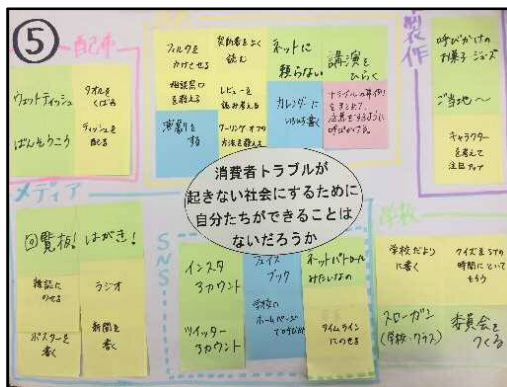 ⑤
配布
ウェットティッシュ
タオルを
くばる
ばんそうこう
ティッシュを
配る
フィルタを
かけさせる
契約書をよく
読む
ネットに
頼らない
講演を
ひらく
相談窓口
を教える
レビューを
読み考える
カレンダーに
いろいろ書く
演劇を
する
クーリングオフの
方法を教える
製作
呼びかけの
お菓子 ジュース
ご当地～
キャラクター
を考えて
注目アップ
消費者トラブルが
起きない社会にするために
自分たちができることは
ないだろうか
メディア
回覧板!
はがき!
雑誌に
のせる
ラジオ
ポスターを
書く
新聞を
書く
SNS
インスタ
アカウント
フェイス
ブック
ネットパトロール
みたいなの
ツイッター
アカウント
学校の
ホームページ
タイムライン
にのせる
学校
学校だより
に書く
クイズをSTの
時間にといて
もらう
スローガン
(学校・クラス)
委員会を
つくる